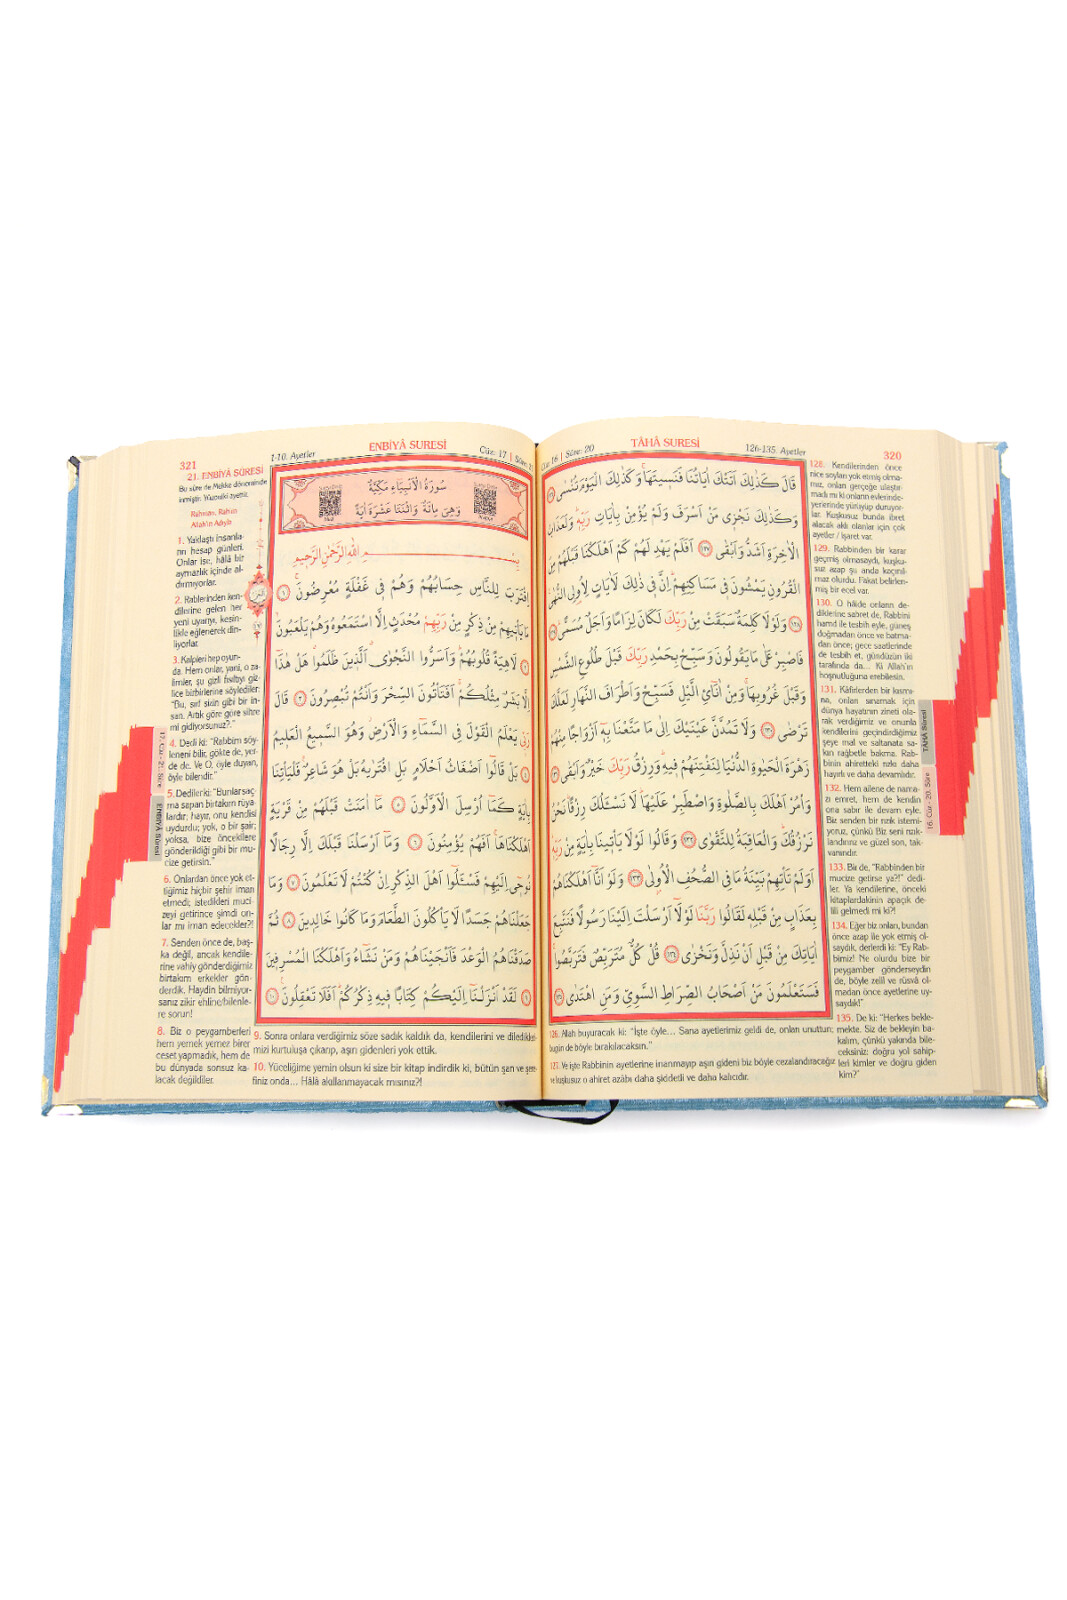 320
TÂHÂ SURESİ
126-135. Ayetler
Cüz: 16 | Sûre: 20
قَالَ كَذٰلِكَ اَتَتْكَ اٰيَاتُنَا فَنَسٖيتَهَا وَكَذٰلِكَ الْيَوْمَ تُنْسٰى ﴿١٢٦﴾
وَكَذٰلِكَ نَجْزٖى مَنْ اَسْرَفَ وَلَمْ يُؤْمِنْ بِاٰيَاتِ رَبِّهٖ وَلَعَذَابُ
الْاٰخِرَةِ اَشَدُّ وَاَبْقٰى ﴿١٢٧﴾ اَفَلَمْ يَهْدِ لَهُمْ كَمْ اَهْلَكْنَا قَبْلَهُمْ مِنَ
الْقُرُونِ يَمْشُونَ فٖى مَسَاكِنِهِمْ اِنَّ فٖى ذٰلِكَ لَاٰيَاتٍ لِاُولِى النُّهٰى
﴿١٢٨﴾ وَلَوْلَا كَلِمَةٌ سَبَقَتْ مِنْ رَبِّكَ لَكَانَ لِزَامًا وَاَجَلٌ مُسَمًّى ﴿١٢٩﴾
فَاصْبِرْ عَلٰى مَا يَقُولُونَ وَسَبِّحْ بِحَمْدِ رَبِّكَ قَبْلَ طُلُوعِ الشَّمْسِ
وَقَبْلَ غُرُوبِهَا وَمِنْ اٰنَائِ الَّيْلِ فَسَبِّحْ وَاَطْرَافَ النَّهَارِ لَعَلَّكَ
تَرْضٰى ﴿١٣٠﴾ وَلَا تَمُدَّنَّ عَيْنَيْكَ اِلٰى مَا مَتَّعْنَا بِهٖ اَزْوَاجًا مِنْهُمْ
زَهْرَةَ الْحَيٰوةِ الدُّنْيَا لِنَفْتِنَهُمْ فٖيهِ وَرِزْقُ رَبِّكَ خَيْرٌ وَاَبْقٰى ﴿١٣١﴾
وَاْمُرْ اَهْلَكَ بِالصَّلٰوةِ وَاصْطَبِرْ عَلَيْهَا لَا نَسْئَلُكَ رِزْقًا نَحْنُ
نَرْزُقُكَ وَالْعَاقِبَةُ لِلتَّقْوٰى ﴿١٣٢﴾ وَقَالُوا لَوْلَا يَاْتٖينَا بِاٰيَةٍ مِنْ رَبِّهٖ
اَوَلَمْ تَاْتِهِمْ بَيِّنَةُ مَا فِى الصُّحُفِ الْاُولٰى ﴿١٣٣﴾ وَلَوْ اَنَّا اَهْلَكْنَاهُمْ
بِعَذَابٍ مِنْ قَبْلِهٖ لَقَالُوا رَبَّنَا لَوْلَا اَرْسَلْتَ اِلَيْنَا رَسُولًا فَنَتَّبِعَ
اٰيَاتِكَ مِنْ قَبْلِ اَنْ نَذِلَّ وَنَخْزٰى ﴿١٣٤﴾ قُلْ كُلٌّ مُتَرَبِّصٌ فَتَرَبَّصُوا
فَسَتَعْلَمُونَ مَنْ اَصْحَابُ الصِّرَاطِ السَّوِىِّ وَمَنِ اهْتَدٰى ﴿١٣٥﴾
126. Allah buyuracak ki: "İşte öyle... Sana ayetlerimiz geldi de, onları unuttun;
bugün de böyle bırakılacaksın."
127. Ve işte Rabbinin ayetlerine inanmayıp aşırı gideni biz böyle cezalandıracağız
ve kuşkusuz o ahiret azâbı daha şiddetli ve daha kalıcıdır.
128. Kendilerinden önce
nice soyları yok etmiş olma-
mız, onları gerçeğe ulaştır-
madı mı ki onların evlerinde-
yerlerinde yürüyüp duruyor-
lar. Kuşkusuz bunda ibret
alacak aklı olanlar için çok
ayetler / işaret var.
129. Rabbinden bir karar
geçmiş olmasaydı, kuşku-
suz azap şu anda kaçınıl-
maz olurdu. Fakat belirlen-
miş bir ecel var.
130. O hâlde onların de-
diklerine sabret de, Rabbini
hamd ile tesbih eyle, güneş
doğmadan önce ve batma-
dan önce; gece saatlerinde
de tesbih et, gündüzün iki
tarafında da... Ki Allah'ın
hoşnutluğuna erebilesin.
131. Kâfirlerden bir kısmı-
na, onları sınamak için
dünya hayatının zineti ola-
rak verdiğimiz ve onunla
kendilerini geçindirdiğimiz
şeye mal ve saltanata sa-
kın rağbetle bakma. Rab-
binin ahiretteki rızkı daha
hayırlı ve daha devamlıdır.
132. Hem ailene de nama-
zı emret, hem de kendin
ona sabır ile devam eyle.
Biz senden bir rızık istemi-
yoruz, çünkü Biz seni rızık-
landırırız ve güzel son, tak-
vanındır.
133. Bir de, "Rabbinden bir
mucize getirse ya?!" dedi-
ler. Ya kendilerine, önceki
kitaplardakinin apaçık de-
lili gelmedi mi ki?!
134. Eğer biz onları, bundan
önce azap ile yok etmiş ol-
saydık, derlerdi ki: "Ey Rab-
bimiz! Ne olurdu bize bir
peygamber gönderseydin
de, böyle zelil ve rüsvâ ol-
madan önce ayetlerine uy-
saydık!"
135. De ki: "Herkes bekle-
mekte. Siz de bekleyin ba-
kalım, çünkü yakında bile-
ceksiniz: doğru yol sahip-
leri kimler ve doğru giden
kim?"
TÂHÂ Sûresi
16. Cüz - 20. Sûre
321
1-10. Ayetler
ENBİYÂ SURESİ
Cüz: 17 | Sûre: 21
سُورَةُ الْاَنْبِيَاءِ مَكِّيَّةٌ
وَهِىَ مِائَةٌ وَاثْنَتَا عَشَرَةَ اٰيَةً
بِسْمِ اللّٰهِ الرَّحْمٰنِ الرَّحٖيمِ
اِقْتَرَبَ لِلنَّاسِ حِسَابُهُمْ وَهُمْ فٖى غَفْلَةٍ مُعْرِضُونَ ﴿١﴾
مَا يَاْتٖيهِمْ مِنْ ذِكْرٍ مِنْ رَبِّهِمْ مُحْدَثٍ اِلَّا اسْتَمَعُوهُ وَهُمْ يَلْعَبُونَ
﴿٢﴾ لَاهِيَةً قُلُوبُهُمْ وَاَسَرُّوا النَّجْوَى الَّذٖينَ ظَلَمُوا هَلْ هٰذَا
اِلَّا بَشَرٌ مِثْلُكُمْ اَفَتَاْتُونَ السِّحْرَ وَاَنْتُمْ تُبْصِرُونَ ﴿٣﴾ قَالَ
رَبّٖى يَعْلَمُ الْقَوْلَ فِى السَّمَاءِ وَالْاَرْضِ وَهُوَ السَّمٖيعُ الْعَلٖيمُ
﴿٤﴾ بَلْ قَالُوا اَضْغَاثُ اَحْلَامٍ بَلِ افْتَرٰيهُ بَلْ هُوَ شَاعِرٌ فَلْيَاْتِنَا
بِاٰيَةٍ كَمَا اُرْسِلَ الْاَوَّلُونَ ﴿٥﴾ مَا اٰمَنَتْ قَبْلَهُمْ مِنْ قَرْيَةٍ
اَهْلَكْنَاهَا اَفَهُمْ يُؤْمِنُونَ ﴿٦﴾ وَمَا اَرْسَلْنَا قَبْلَكَ اِلَّا رِجَالًا
نُوحٖى اِلَيْهِمْ فَسْئَلُوا اَهْلَ الذِّكْرِ اِنْ كُنْتُمْ لَا تَعْلَمُونَ ﴿٧﴾ وَمَا
جَعَلْنَاهُمْ جَسَدًا لَا يَاْكُلُونَ الطَّعَامَ وَمَا كَانُوا خَالِدٖينَ ﴿٨﴾ ثُمَّ
صَدَقْنَاهُمُ الْوَعْدَ فَاَنْجَيْنَاهُمْ وَمَنْ نَشَاءُ وَاَهْلَكْنَا الْمُسْرِفٖينَ
﴿٩﴾ لَقَدْ اَنْزَلْنَا اِلَيْكُمْ كِتَابًا فٖيهِ ذِكْرُكُمْ اَفَلَا تَعْقِلُونَ ﴿١٠﴾
21. ENBİYÂ SÛRESİ
Bu sûre de Mekke döneminde
inmiştir. Yüzoniki ayettir.
Rahman, Rahim
Allah'ın Adıyla
1. Yaklaştı insanla-
rın hesap günleri.
Onlar ise, hâlâ bir
aymazlık içinde al-
dırmıyorlar.
2. Rablerinden ken-
dilerine gelen her
yeni uyarıyı, kesin-
likle eğlenerek din-
liyorlar.
3. Kalpleri hep oyun-
da. Hem onlar, yani, o za-
limler, şu gizli fısıltıyı giz-
lice birbirlerine söylediler:
"Bu, sırf sizin gibi bir in-
san. Artık göre göre sihre
mi gidiyorsunuz?."
4. Dedi ki: "Rabbim söy-
leneni bilir, gökte de, yer-
de de. Ve O, öyle duyan,
öyle bilendir."
5. Dediler ki: "Bunlar saç-
ma sapan birtakım rüya-
lardır; hayır, onu kendisi
uydurdu; yok, o bir şair;
yoksa, bize öncekilere
gönderildiği gibi bir mu-
cize getirsin."
6. Onlardan önce yok et-
tiğimiz hiçbir şehir iman
etmedi; istedikleri muci-
zeyi getirince şimdi on-
lar mı iman edecekler?!
7. Senden önce de, baş-
ka değil, ancak kendile-
rine vahiy gönderdiğimiz
birtakım erkekler gön-
derdik. Haydin bilmiyor-
sanız zikir ehline/bilenle-
re sorun!
8. Biz o peygamberleri
hem yemek yemez birer
ceset yapmadık, hem de
bu dünyada sonsuz ka-
lacak değildiler.
9. Sonra onlara verdiğimiz söze sadık kaldık da, kendilerini ve dilediklerimizi
kurtuluşa çıkarıp, aşırı gidenleri yok ettik.
10. Yüceliğime yemin olsun ki size bir kitap indirdik ki, bütün şan ve şere-
finiz onda... Hâlâ akıllanmayacak mısınız?!
17. Cüz - 21. Sûre
ENBİYÂ Sûresi